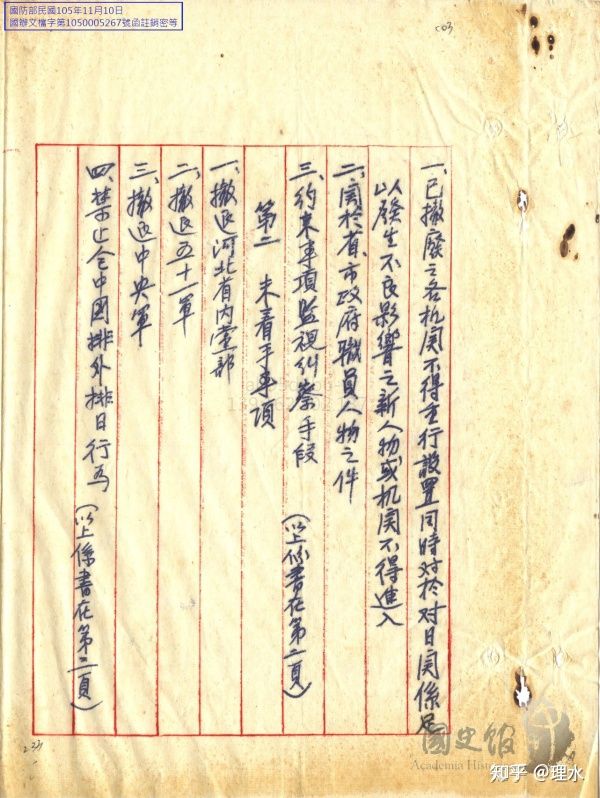 國防部民國105年11月10日
國辦文檔字第1050005267號函註銷密等
一、已撤廢之各机関不得重行設置同時对於对日関係足
以發生不良影響之新人物或机関不得進入
二、関於省、市政府職員人物之件
三、約束事項監視糾察手段（以上係書在第二頁）
第二 未着手事項
一、撤退河北省内黨部
二、撤退五十一軍
三、撤退中央軍
四、禁止全中国排外排日行為（以上係書在第三頁）
國史館
Academia Histo
知乎 @理水